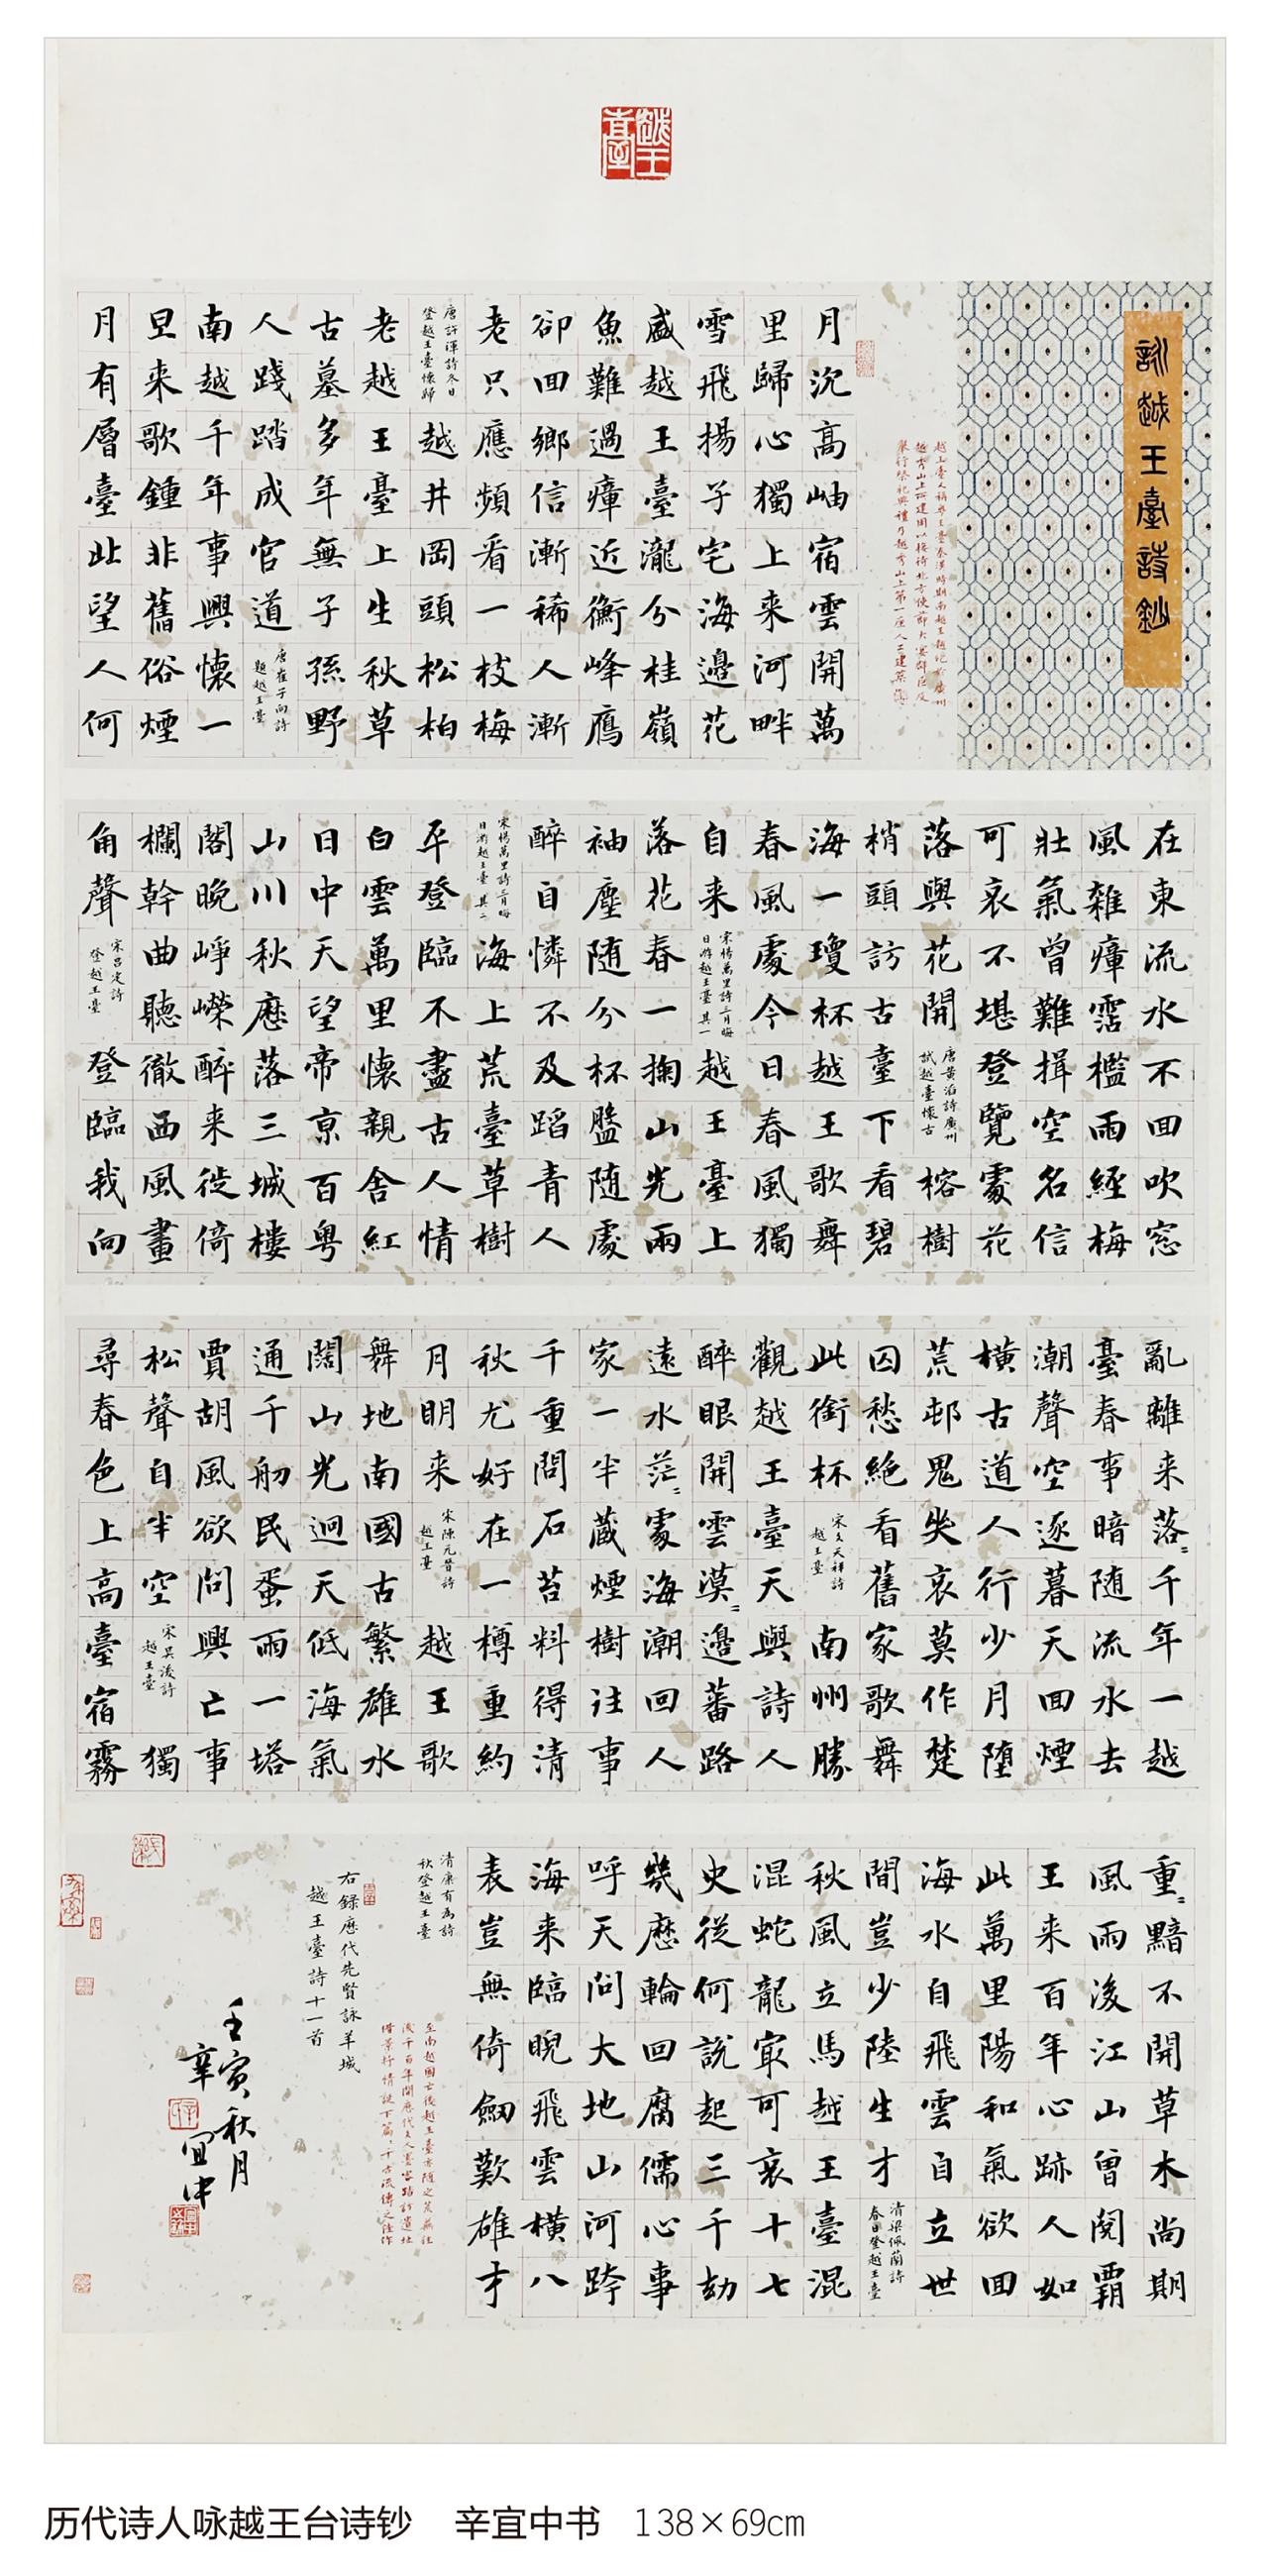 越王臺
詠越王臺詩鈔
越王臺又稱粵王臺秦漢時期南越王趙佗於廣州
越秀山上所建用以接待北方使節大宴群臣及
舉行祭祀典禮乃越秀山上第一座人工建築
月沉高岫宿雲開萬
里歸心獨上来河畔
雪飛揚子宅海邊花
盛越王臺瀧分桂嶺
魚難過瘴近衡峰鴈
卻回鄉信漸稀人漸
老只應頻看一枝梅
唐許渾詩冬日
登越王臺懷歸
越井岡頭松柏
老越王臺上生秋草
古墓多年無子孫野
人踐踏成官道
唐崔子向詩
題越王臺
南越千年事興懷一
旦来歌鍾非舊俗煙
月有層臺北望人何
在東流水不回吹窓
風雜瘴霑檻雨經梅
壯氣曾難揖空名信
可哀不堪登覽處花
落與花開
唐黃滔詩廣州
試越臺懷古
榕樹
梢頭訪古臺下看碧
海一瓊杯越王歌舞
春風處今日春風獨
自来
宋楊萬里詩三月晦
日游越王臺其一
越王臺上
落花春一掬山光兩
袖塵随分杯盤随處
醉自憐不及蹈青人
宋楊萬里詩三月晦
日游越王臺其二
海上荒臺草樹
平登臨不盡古人情
白雲萬里懷親舍紅
日中天望帝京百粤
山川秋歷落三城樓
閣晚崢嶸醉来徙倚
欄幹曲聽徹西風畫
角聲
宋呂定詩
登越王臺
登臨我向
亂離来落〻千年一越
臺春事暗随流水去
潮聲空逐暮天回煙
橫古道人行少月墮
荒邨鬼哭哀莫作楚
囚愁絕看舊家歌舞
此銜杯
宋文天祥詩
越王臺
南州勝
觀越王臺天與詩人
醉眼開雲漠〻邊蕃路
遠水茫〻處海潮回人
家一半蔵煙樹往事
千重問石苔料得清
秋尤好在一樽重約
月明来
宋陳元晉詩
越王臺
越王歌
舞地南國古繁雄水
闊山光迥天低海氣
通千舠民蜑雨一塔
賈胡風欲問興亡事
松聲自半空
宋吳浚詩
越王臺
獨
尋春色上高臺宿霧
重〻黯不開草木尚期
風雨後江山曾閱霸
王来百年心跡人如
此萬里陽和氣欲回
海水自飛雲自立世
間豈少陸生才
清梁佩蘭詩
春日登越王臺
秋風立馬越王臺混
混蛇龍最可哀十七
史從何說起三千劫
幾歷輪回腐儒心事
呼天問大地山河跨
海来臨睨飛雲橫八
表豈無倚劒歎雄才
清康有為詩
秋登越王臺
至南越國亡後越王臺亦随之荒蕪往
後千百年間歷代文人墨客踏訪遺址
借景抒情誕下篇〻千古流傳之佳作
右録歷代先賢詠羊城
越王臺詩十一首
壬寅秋月
辛宜中
历代诗人咏越王台诗钞 辛宜中书 138×69cm